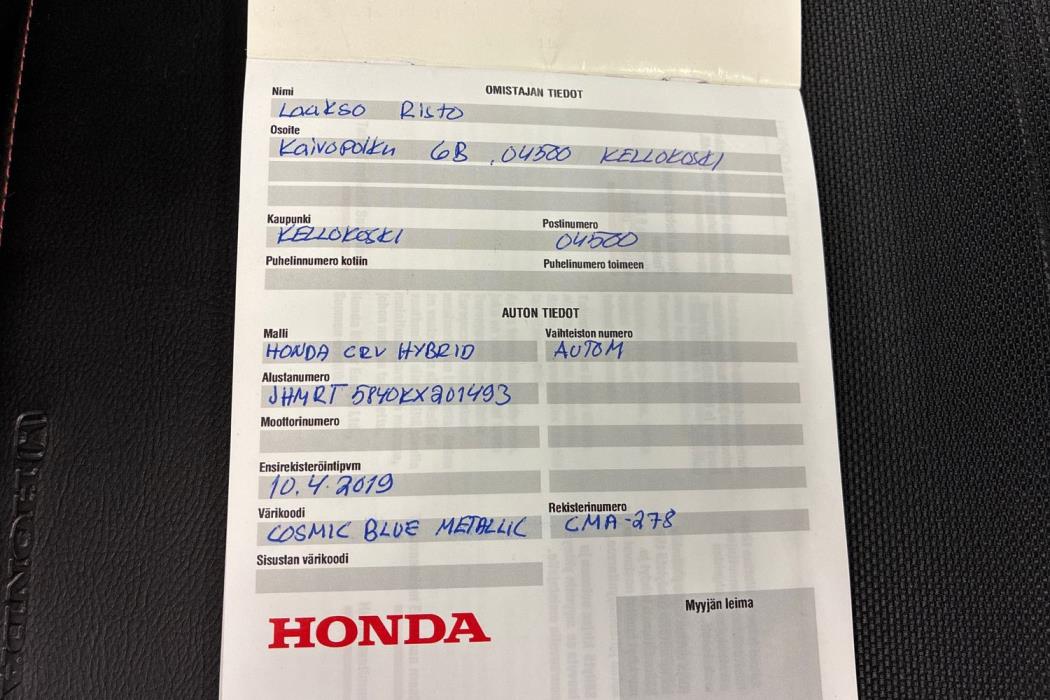 OMISTAJAN TIEDOT
Nimi
Laakso Risto
Osoite
Kaivopolku 6B, 04500 KELLOKOSKI
Kaupunki Postinumero
KELLOKOSKI 04500
Puhelinnumero kotiin Puhelinumero toimeen
AUTON TIEDOT
Malli Vaihteiston numero
HONDA CRV HYBRID AUTOM
Alustanumero
JHMRT5840KX201493
Moottorinumero
Ensirekisteröintipvm
10.4.2019
Värikoodi Rekisterinumero
COSMIC BLUE METALLIC CMA-278
Sisustan värikoodi
HONDA
Myyjän leima
HONDA